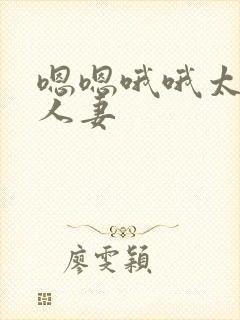 嗯嗯哦哦太
人妻
廖雯颖